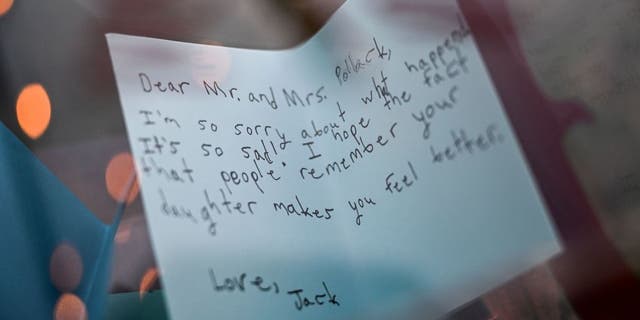 Dear Mr. and Mrs. Pollack,
I'm so sorry about what happend
It's so sad. I hope the fact
that people remember your
daughter makes you feel better.
Love,
Jack